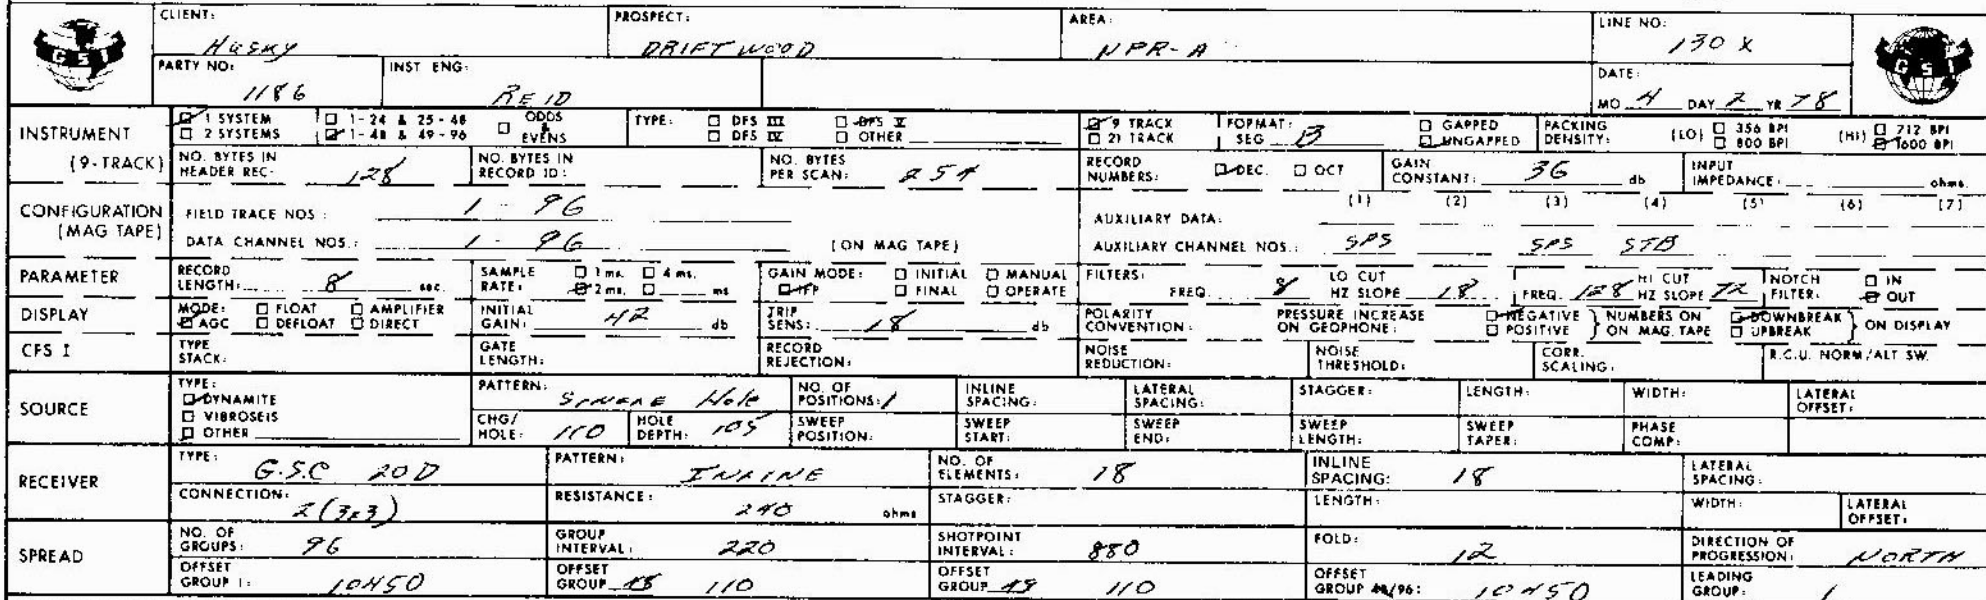 CLIENT: PROSPECT: AREA: LINE NO:
GSI HUSKY DRIFTWOOD NPR-A 130 X GSI
PARTY NO: INST ENG: DATE:
1186 REID MO 4 DAY 2 YR 78
INSTRUMENT 1 SYSTEM 1-24 & 25-48 ODDS & EVENS TYPE: DFS III DFS V 9 TRACK FORMAT: GAPPED PACKING (LO) 356 BPI (HI) 712 BPI
2 SYSTEMS 1-48 & 49-96 DFS IV OTHER 21 TRACK SEG B UNGAPPED DENSITY: 800 BPI 1600 BPI
(9-TRACK) NO. BYTES IN HEADER REC. 128 NO. BYTES IN RECORD ID: NO. BYTES PER SCAN: 254 RECORD NUMBERS: DEC. OCT GAIN CONSTANT: 36 db INPUT IMPEDANCE: ohms
CONFIGURATION FIELD TRACE NOS: 1 - 96 AUXILIARY DATA: (1) (2) (3) (4) (5) (6) (7)
(MAG TAPE) DATA CHANNEL NOS.: 1 - 96 (ON MAG TAPE) AUXILIARY CHANNEL NOS.: SPS SPS STB
PARAMETER RECORD LENGTH: 8 sec. SAMPLE RATE: 1 ms. 4 ms. 2 ms. ms GAIN MODE: INITIAL MANUAL IFP FINAL OPERATE FILTERS: FREQ. 8 LO CUT HZ SLOPE 18 FREQ. 128 HI CUT HZ SLOPE 72 NOTCH FILTER: IN OUT
DISPLAY MODE: FLOAT AMPLIFIER AGC DEFLOAT DIRECT INITIAL GAIN: 42 db TRIP SENS: 18 db POLARITY CONVENTION: PRESSURE INCREASE ON GEOPHONE: NEGATIVE POSITIVE NUMBERS ON ON MAG. TAPE DOWNBREAK UPBREAK ON DISPLAY
CFS I TYPE STACK: GATE LENGTH: RECORD REJECTION: NOISE REDUCTION: NOISE THRESHOLD: CORR. SCALING: R.C.U. NORM/ALT SW.
SOURCE TYPE: DYNAMITE VIBROSEIS OTHER PATTERN: Hole NO. OF POSITIONS: 1 INLINE SPACING: LATERAL SPACING: STAGGER: LENGTH: WIDTH: LATERAL OFFSET:
CHG/HOLE: 110 HOLE DEPTH: 105 SWEEP POSITION: SWEEP START: SWEEP END: SWEEP LENGTH: SWEEP TAPER: PHASE COMP:
RECEIVER TYPE: G.S.C 20D PATTERN: INLINE NO. OF ELEMENTS: 18 INLINE SPACING: 18 LATERAL SPACING:
CONNECTION: 2(3x3) RESISTANCE: 240 ohms STAGGER: LENGTH: WIDTH: LATERAL OFFSET:
SPREAD NO. OF GROUPS: 96 GROUP INTERVAL: 220 SHOTPOINT INTERVAL: 880 FOLD: 12 DIRECTION OF PROGRESSION: NORTH
OFFSET GROUP 1: 10450 OFFSET GROUP 48 110 OFFSET GROUP 49 110 OFFSET GROUP 48/96: 10450 LEADING GROUP: 1